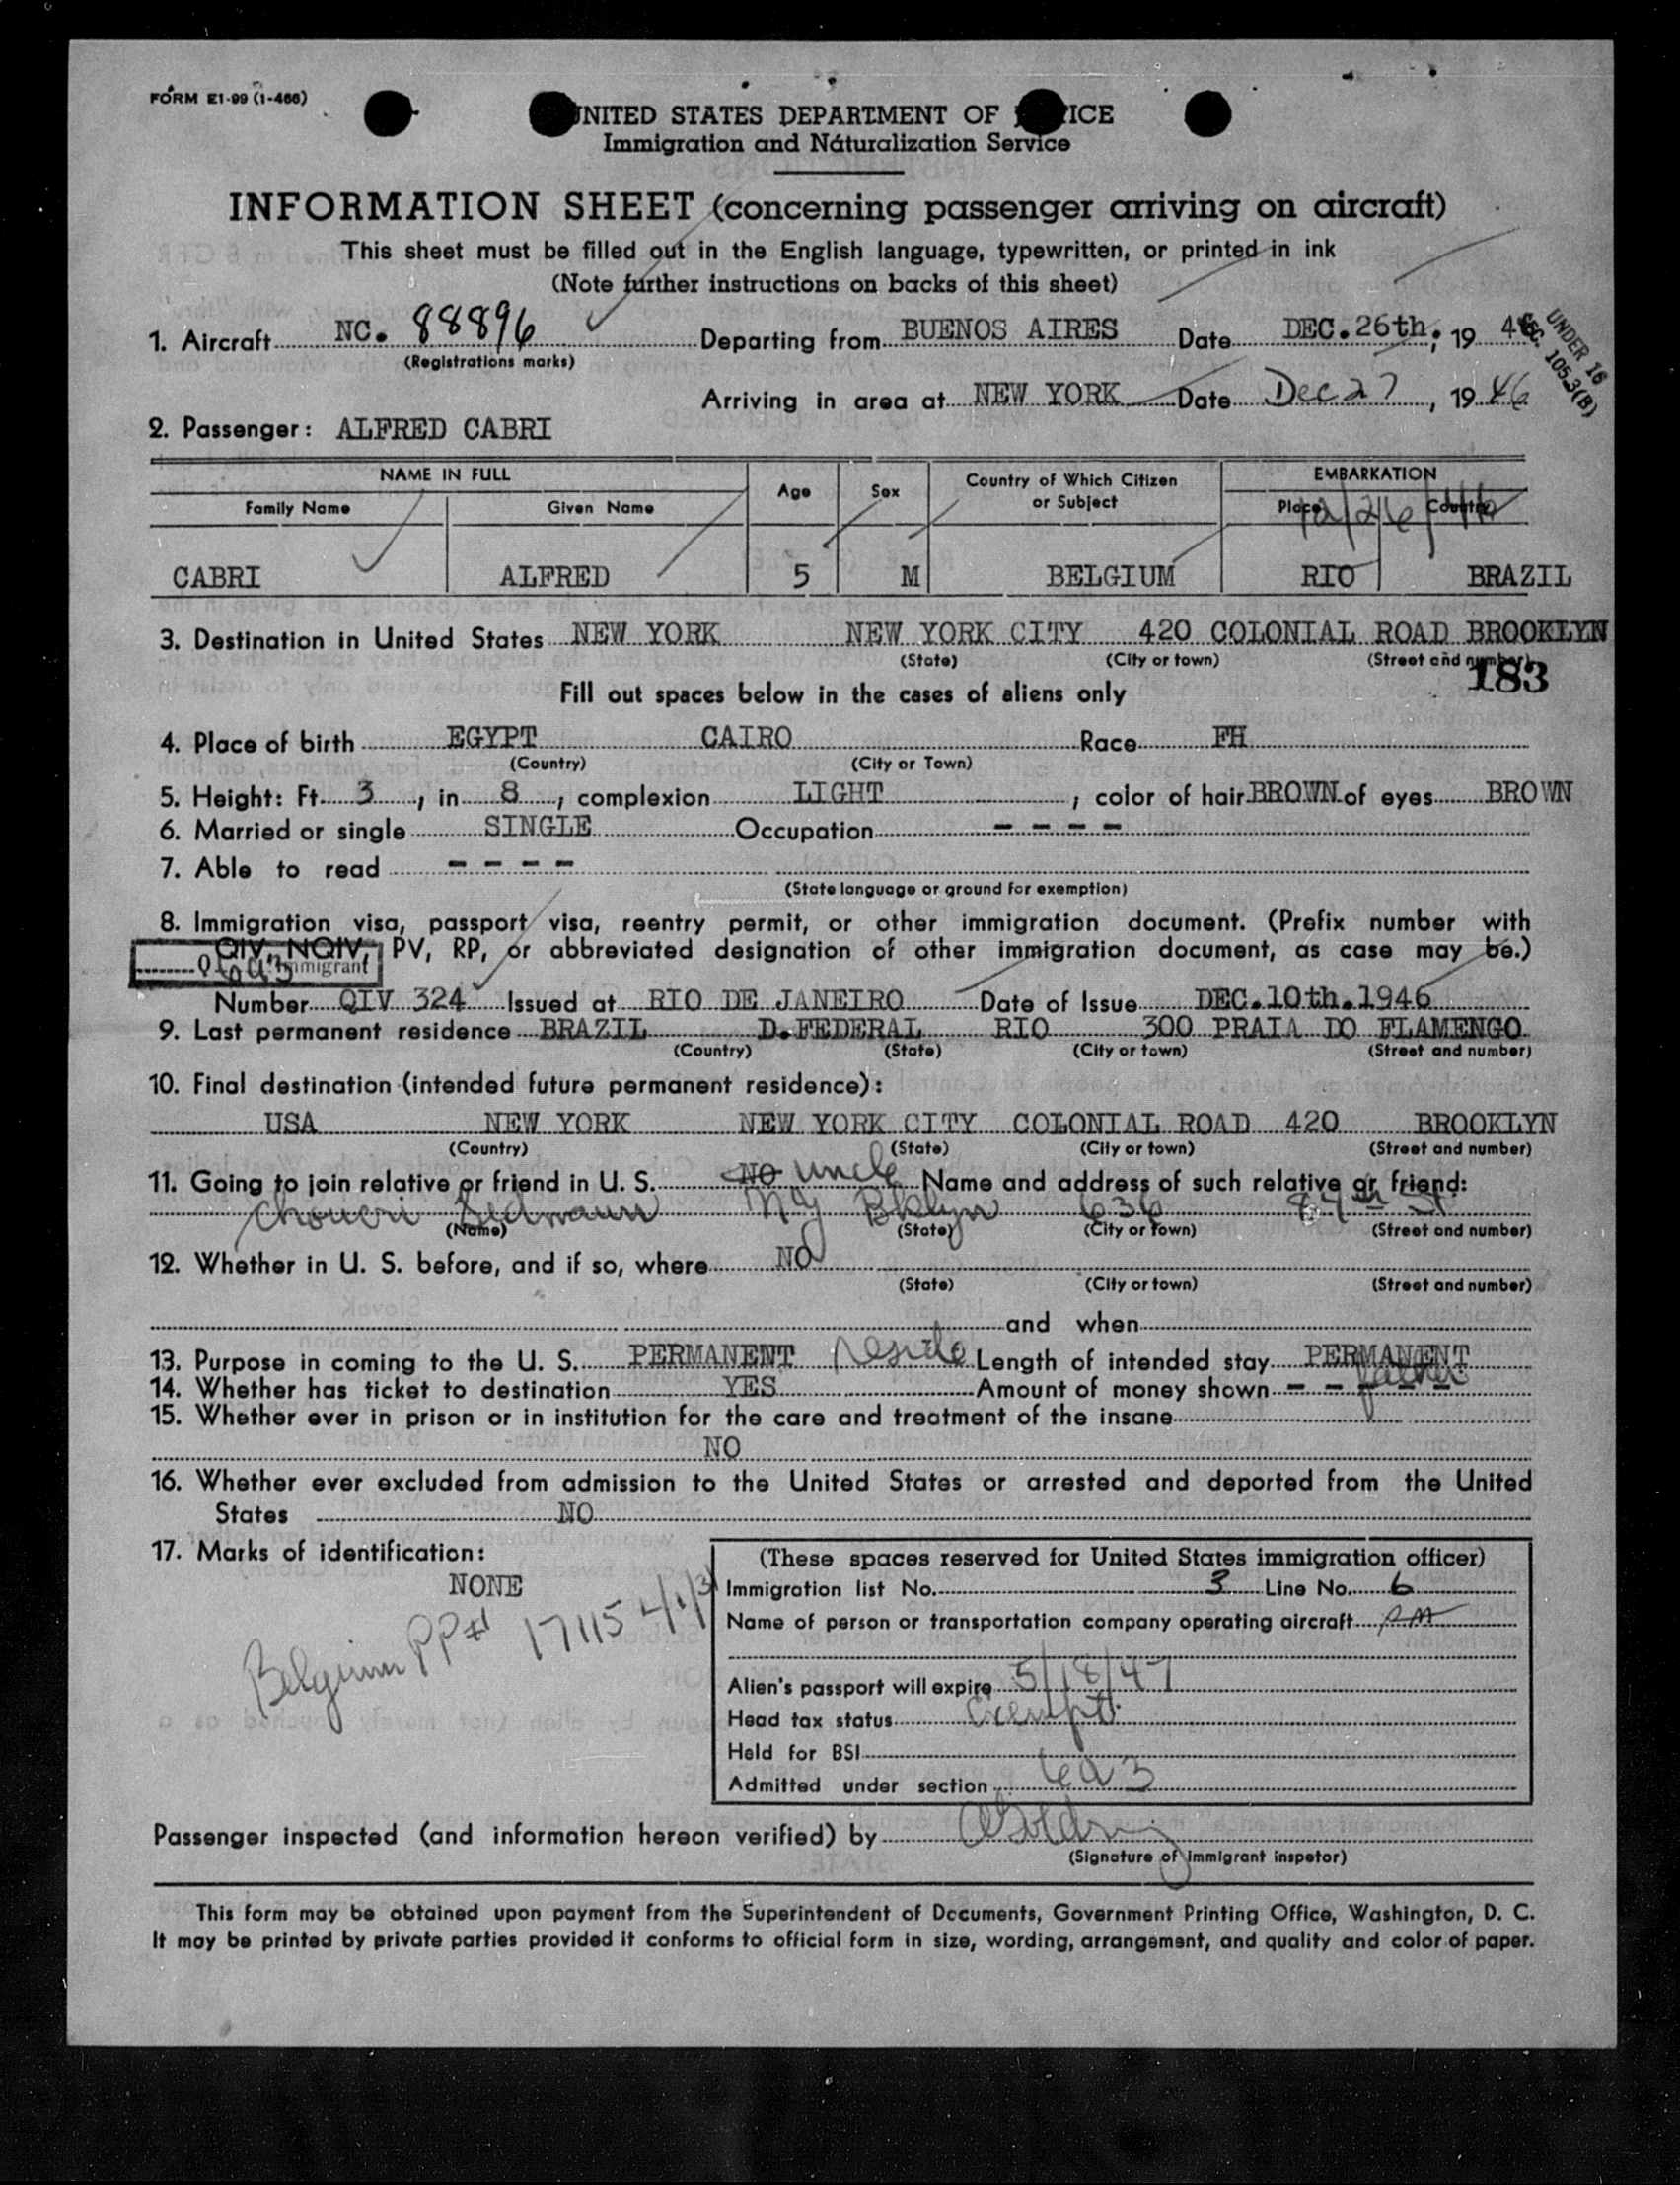 FORM E1-99 (1-466)
UNITED STATES DEPARTMENT OF ICE
Immigration and Naturalization Service
INFORMATION SHEET (concerning passenger arriving on aircraft)
This sheet must be filled out in the English language, typewritten, or printed in ink
(Note further instructions on backs of this sheet)
1. Aircraft NC. 88896 Departing from BUENOS AIRES Date DEC.26th, 19 46
(Registrations marks)
UNDER 16
SEC. 105.3(B)
Arriving in area at NEW YORK Date Dec 27, 19 46
2. Passenger: ALFRED CABRI
NAME IN FULL Age Sex Country of Which Citizen or Subject EMBARKATION
Family Name Given Name Place Country
12/26/46
CABRI ALFRED 5 M BELGIUM RIO BRAZIL
3. Destination in United States NEW YORK NEW YORK CITY 420 COLONIAL ROAD BROOKLYN
(State) (City or town) (Street and number)
183
Fill out spaces below in the cases of aliens only
4. Place of birth EGYPT CAIRO Race FH
(Country) (City or Town)
5. Height: Ft. 3, in 8, complexion LIGHT, color of hair BROWN of eyes BROWN
6. Married or single SINGLE Occupation - - - -
7. Able to read - - - -
(State language or ground for exemption)
8. Immigration visa, passport visa, reentry permit, or other immigration document. (Prefix number with
QIV, NQIV, PV, RP, or abbreviated designation of other immigration document, as case may be.)
6a3 immigrant
Number QIV 324 Issued at RIO DE JANEIRO Date of Issue DEC.10th.1946
9. Last permanent residence BRAZIL D.FEDERAL RIO 300 PRAIA DO FLAMENGO
(Country) (State) (City or town) (Street and number)
10. Final destination (intended future permanent residence):
USA NEW YORK NEW YORK CITY COLONIAL ROAD 420 BROOKLYN
(Country) (State) (City or town) (Street and number)
11. Going to join relative or friend in U. S. NO uncle Name and address of such relative or friend:
Choucri NY Bklyn 636 84th St
(Name) (State) (City or Town) (Street and number)
12. Whether in U. S. before, and if so, where NO
(State) (City or town) (Street and number)
and when
13. Purpose in coming to the U. S. PERMANENT reside Length of intended stay PERMANENT
14. Whether has ticket to destination YES Amount of money shown - - - - - father
15. Whether ever in prison or in institution for the care and treatment of the insane
NO
16. Whether ever excluded from admission to the United States or arrested and deported from the United
States NO
17. Marks of identification:
NONE
Belgium PP# 17115 4/1/3
(These spaces reserved for United States immigration officer)
Immigration list No. 3 Line No. 6
Name of person or transportation company operating aircraft
Alien's passport will expire 5/18/47
Head tax status Exempt
Held for BSI
Admitted under section 6a3
Passenger inspected (and information hereon verified) by
(Signature of immigrant inspetor)
This form may be obtained upon payment from the Superintendent of Documents, Government Printing Office, Washington, D. C.
It may be printed by private parties provided it conforms to official form in size, wording, arrangement, and quality and color of paper.